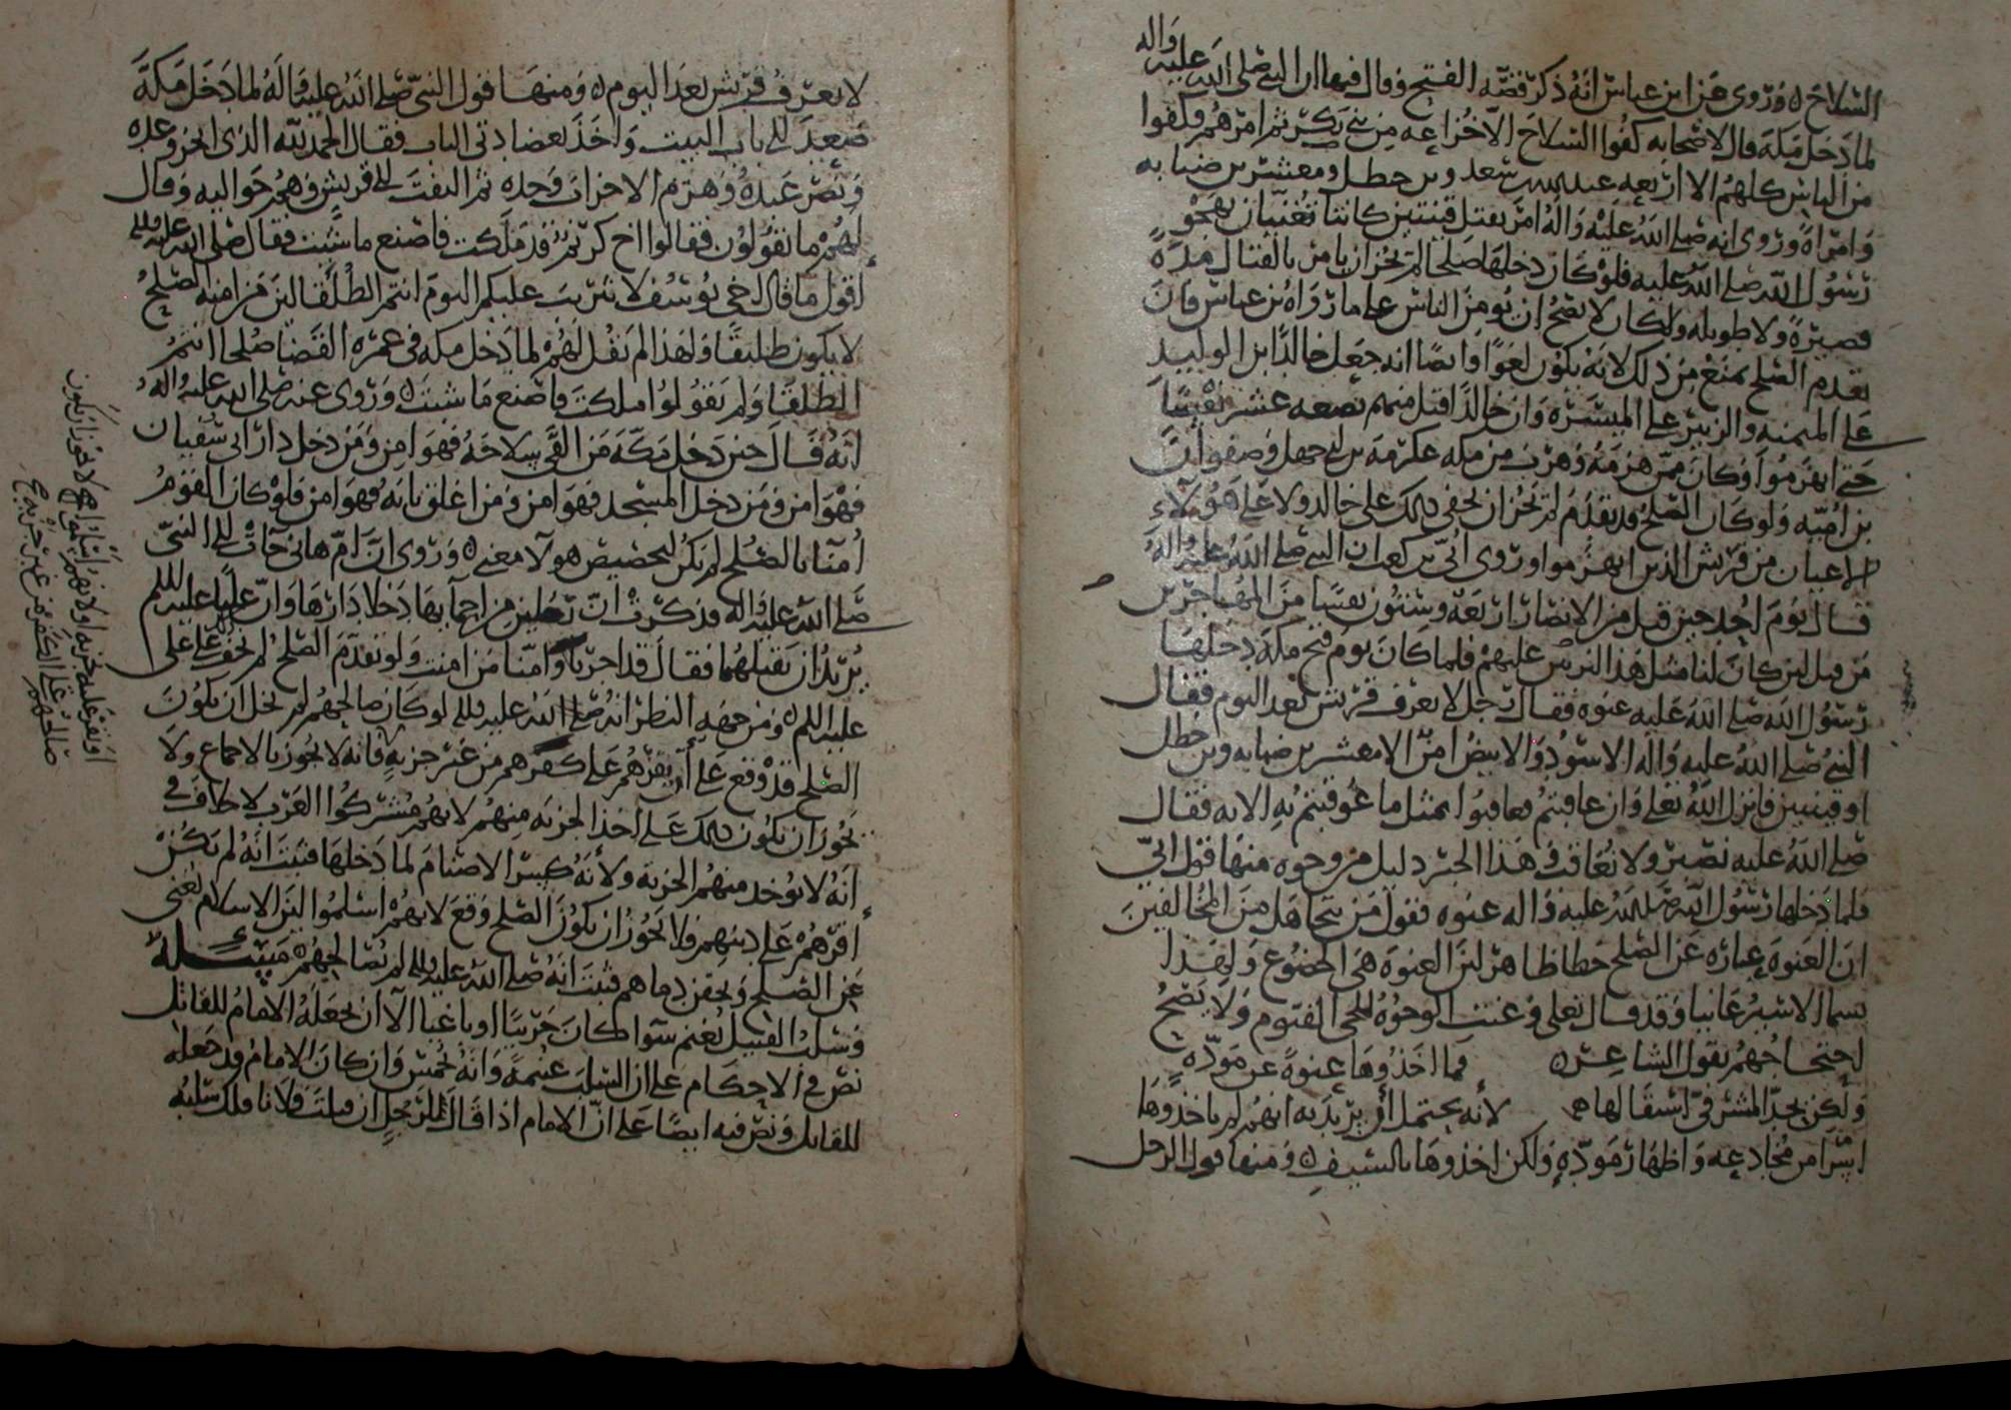 السلاح ۵ وروى عن ابن عباس أنه ذكر قصة الفتح وقال فيها ان النبي صلى الله عليه وآله
لما دخل مكة قال لاصحابه كفوا السلاح الا خزاعه من بني بكر ثم امرهم فكفوا
من الناس كلهم الا اربعه عبد الله بن سعد وبن خطل ومعشر بن ضبابه
وامراة وروى انه صلى الله عليه وآله امر بقتل قينتين كانتا تغنيان بهجو
رسول الله صلى الله عليه فلو كان دخلها صلحا لم يجز ان يامر بالقتال مدة
قصيرة ولا طويله ولكان لا يصح ان يومن الناس على ما رواه بن عباس فان
تقدم الصلح يمنع من ذلك لانه يكون لغوا وايضا انه جعل خالدا بن الوليد
على الميمنه والزبير على الميسره وان خالدا قتل منهم بضعه عشر نفسا
حتى انهزموا وكان ممن هزمه وهرب من مكه عكرمة بن ابي جهل وصفوان
بن اميه ولو كان الصلح قد تقدم لم يجز ان يخفى ذلك على خالد ولا على هؤلاء
الاعيان من قريش الذين انهزموا وروى أبي بن كعب ان النبي صلى الله عليه وآله
قال يوم احد حين قتل من الانصار اربعة وستون نفسا من المهاجرين
من قبل لئن كان لنا مثل هذا لنربين عليهم فلما كان يوم فتح مكة دخلها
رسول الله صلى الله عليه عنوه فقال رجل لا يعرف قريش بعد اليوم فقال
النبي صلى الله عليه وآله الاسود والابيض امن الا معشر بن ضبابه وبن خطل
او قينتين فانزل الله تعلى وان عاقبتم فعاقبوا بمثل ما عوقبتم به الايه فقال
صلى الله عليه نصبر ولا نعاقب وفي هذا الخبر دليل من وجوه منها قول أبي
فلما دخلها رسول الله صلى الله عليه وآله عنوه فقول من يتجاهل من المخالفين
ان العنوة عباره عن الصلح خطا ظاهر لان العنوة هي الخضوع ولهذا
يسما الاسير عانيا وقد قال تعلى وعنت الوجوه للحي القيوم ولا يصح
احتجاجهم بقول الشاعر ۵ فما اخذوها عنوة عن مودة
ولكن بحد المشرفي استقالها لأنه يحتمل أن يريد به انهم لم ياخذوها
من مخادعه واظهار مودة ولكن اخذوها بالسيف ۵ ومنها قول الرجل
لا يعرف قريش بعد اليوم ۵ ومنها قول النبي صلى الله عليه وآله لما دخل مكة
صعد الى باب البيت واخذ بعضادتي الباب فقال الحمد لله الذي انجز وعده
ونصر عبده وهزم الاحزاب وحده ثم التفت الى قريش وهم حواليه وقال
لهم ما تقولون فقالوا اخ كريم قد ملكت فاصنع ما شئت فقال صلى الله عليه وآله
اقول ما قال اخي يوسف لا تثريب عليكم اليوم انتم الطلقا لان من امنه الصلح
لا يكون طليقا ولهذا لم يقل لهم لما دخل مكه في عمرة القضا صلحا انتم
الطلقا ولم يقولوا ملكت فاصنع ما شئت ۵ وروى عنه صلى الله عليه وآله
أنه قال حين دخل مكة من القى سلاحه فهو امن ومن دخل دار ابي سفيان
فهو امن ومن دخل المسجد فهو امن ومن اغلق بابه فهو امن فلو كان القوم
أمنا بالصلح لم يكن لتخصيص هولا معنى ۵ وروى ان ام هاني جات الى النبي
صلى الله عليه وآله فذكرت ان رجلين من احمايها دخلا دارها وان عليا عليه السلم
يريد ان يقتلهما فقال قد اجرنا وامنا من امنت ولو تقدم الصلح لم يخف على علي
عليه السلم ۵ ومن جهه النظر انه صلى الله عليه وآله لو كان صالحهم لم يخل ان يكون
الصلح قد وقع على أن يقرهم على كفرهم من غير جزيه فانه لا يجوز بالاجماع ولا
يجوز ان يكون ذلك على أخذ الجزيه منهم لانهم مشركوا العرب لا خلاف في
انه لا يوخذ منهم الجزيه ولأنه كسر الاصنام لما دخلها فثبت أنه لم يكن
اقرهم على دينهم فلا يجوز ان يكون الصلح وقع لانهم اسلموا لان الاسلام يغني
عن الصلح ويحقن دماهم فثبت انه صلى الله عليه وآله لم يصالحهم مسئلة
وسلب القتيل يغنم سوا كان حربيا او باغيا الا ان يجعله الامام للقاتل
نص في الاحكام على ان السلب غنيمة وانه يخمس وان كان الامام قد جعله
للقاتل ونص فيه ايضا على ان الامام اذا قال لرجل ان قتلت فلانا فلك سلبه